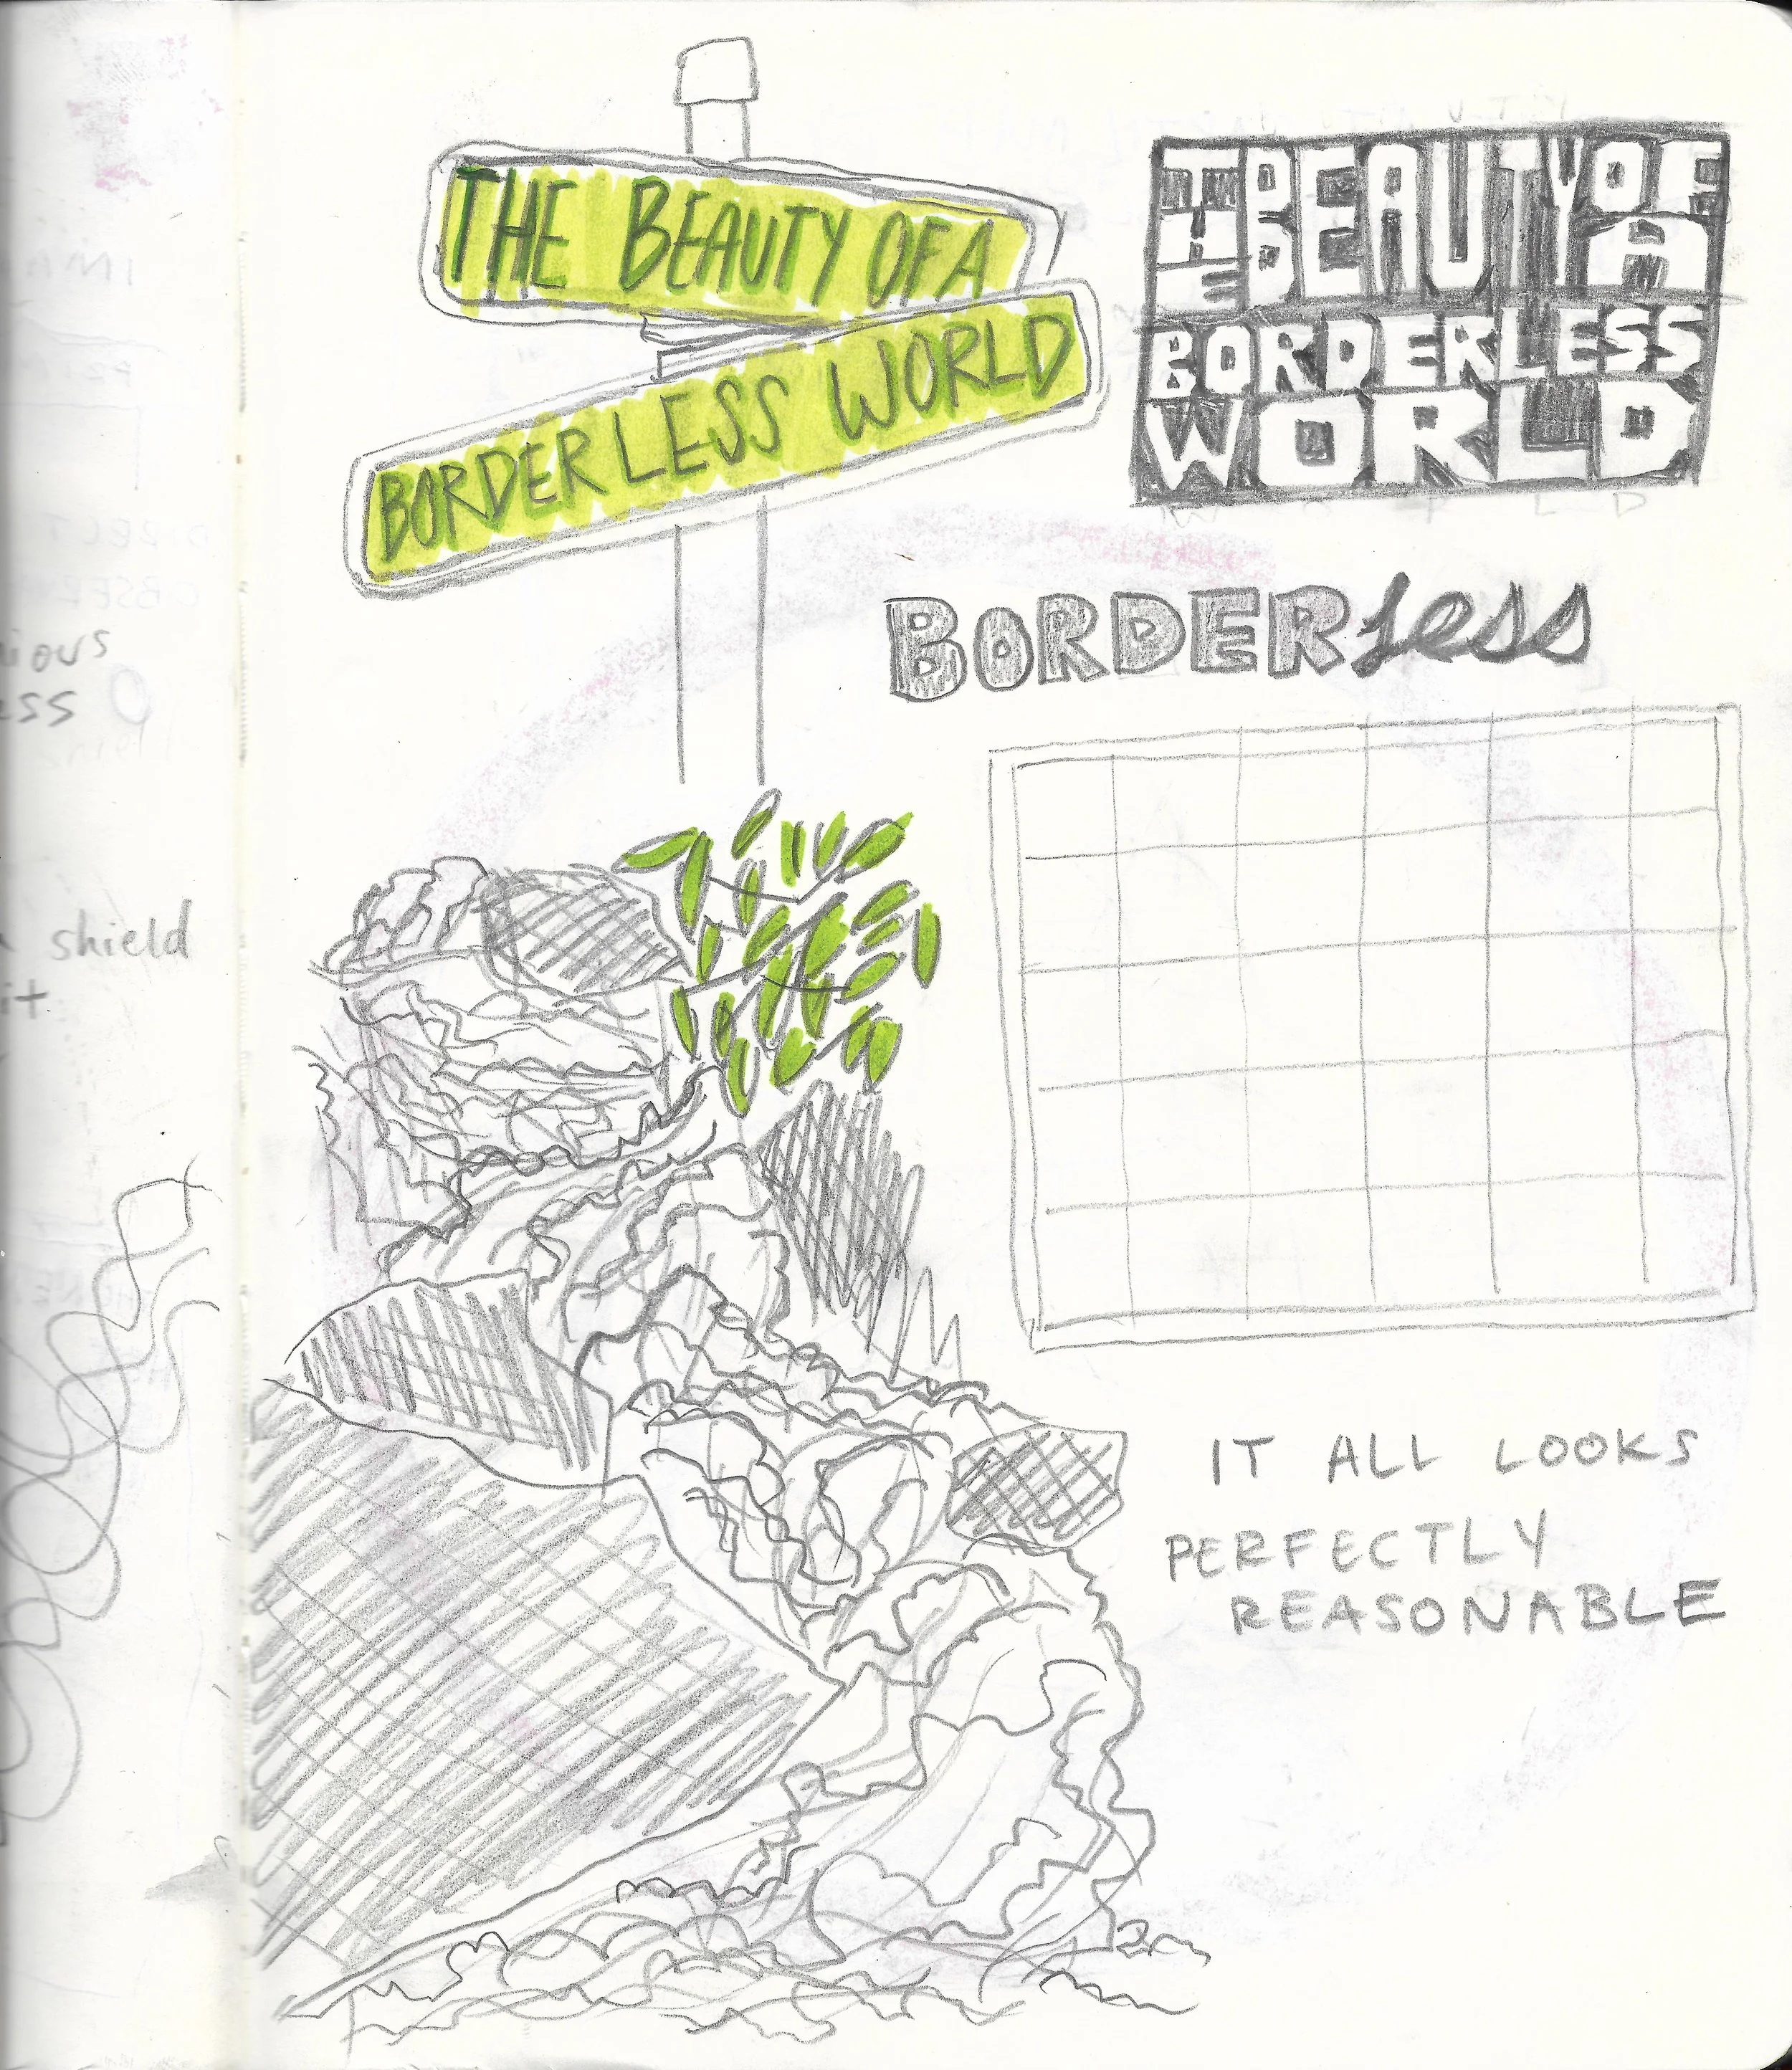 THE BEAUTY OF A
BORDERLESS WORLD
THE BEAUTY OF A
BORDERLESS
WORLD
BORDERless
IT ALL LOOKS
PERFECTLY
REASONABLE
shield
it